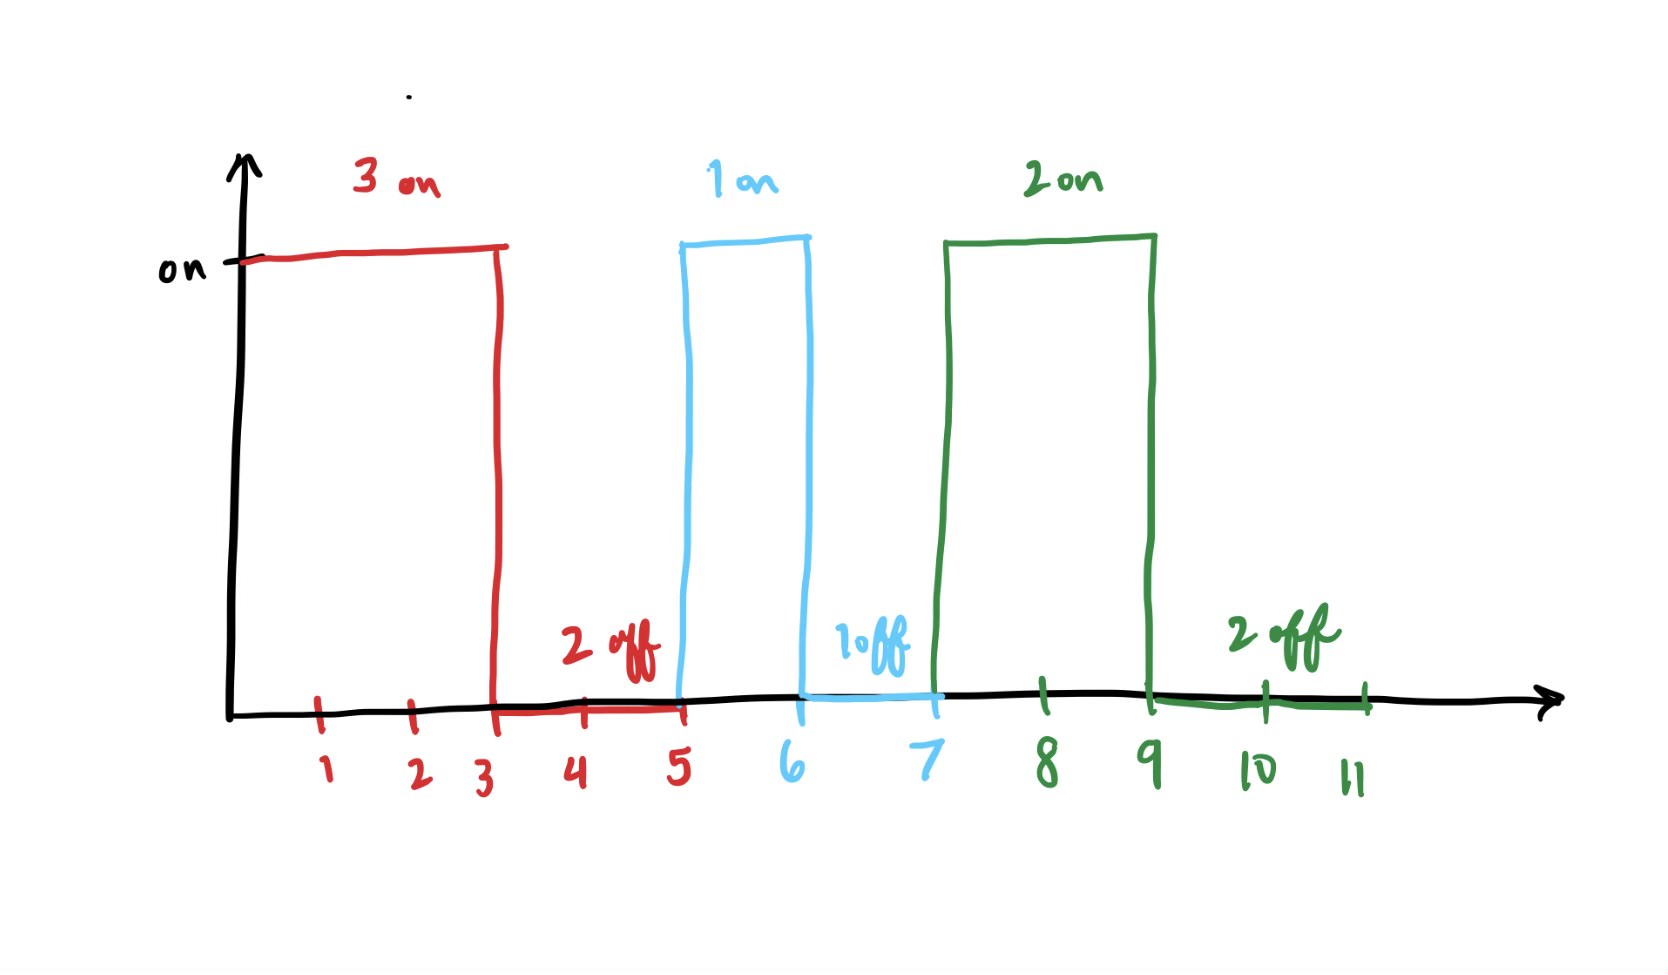 3 on 1 on 2 on
on
2 off 1 off 2 off
1 2 3 4 5 6 7 8 9 10 11